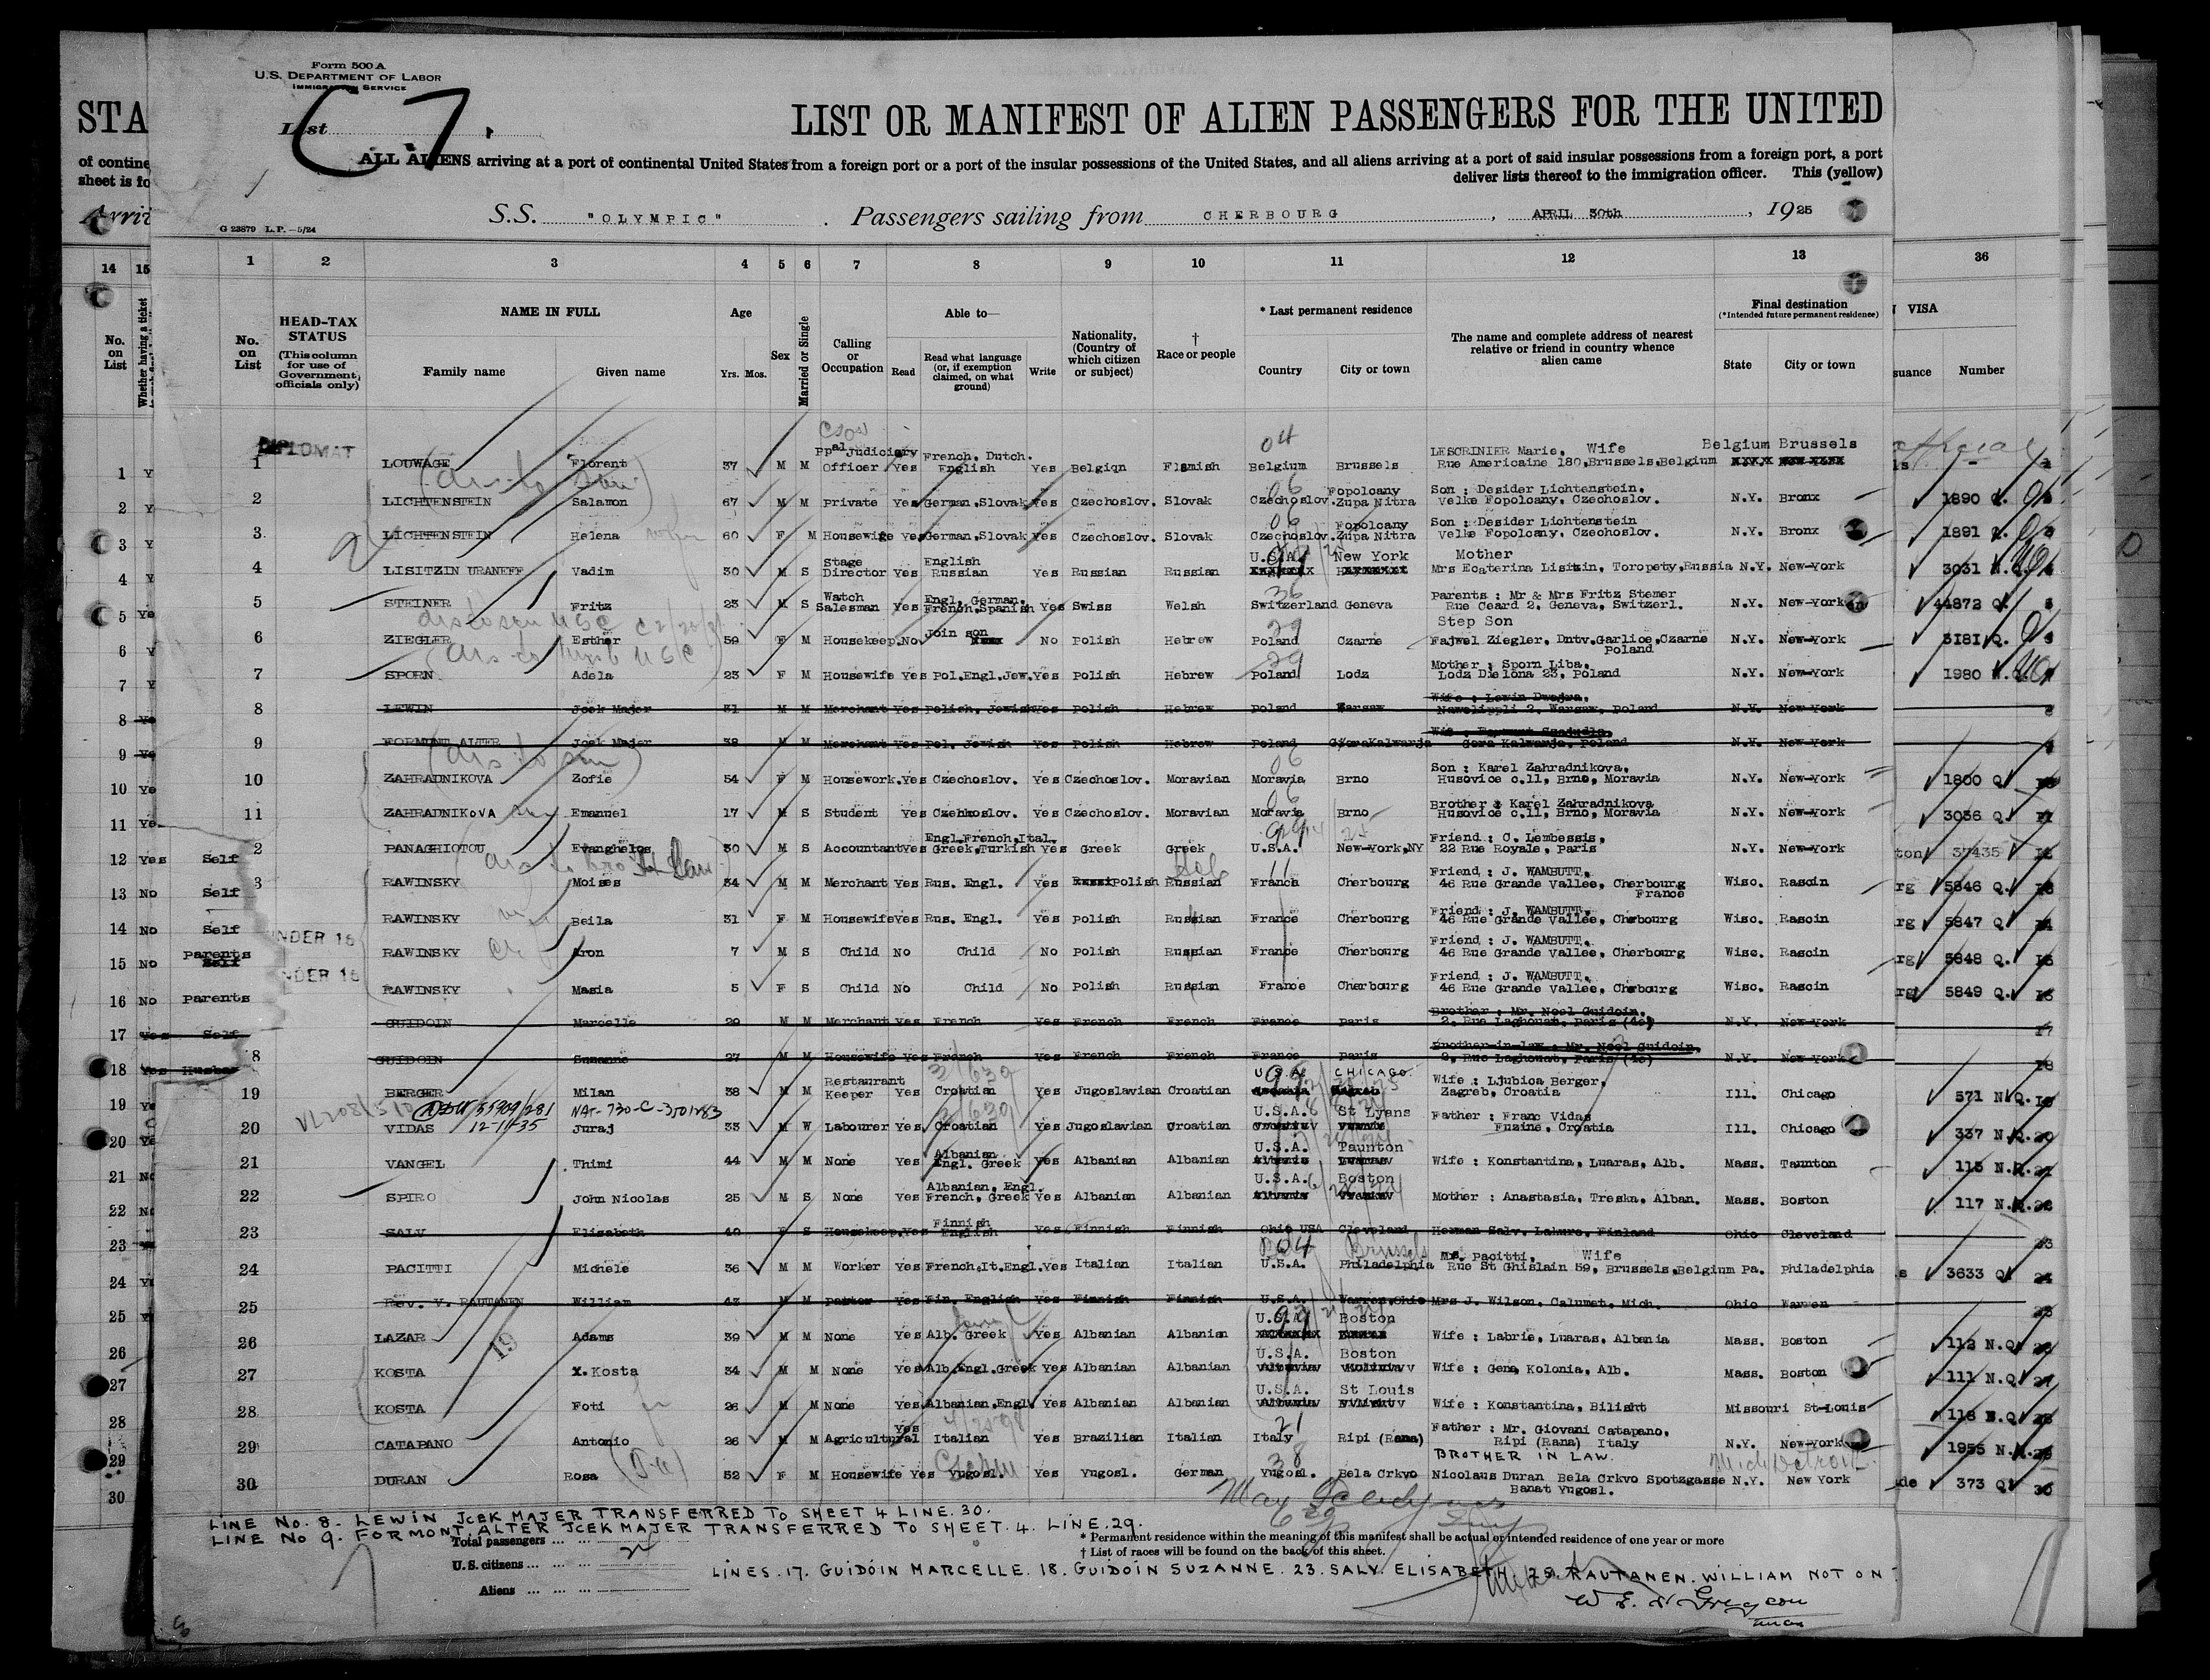 Form 500 A
U.S. DEPARTMENT OF LABOR
IMMIGRATION SERVICE
STA
List
C 7.
LIST OR MANIFEST OF ALIEN PASSENGERS FOR THE UNITED
of contine
sheet is fo
ALL ALIENS arriving at a port of continental United States from a foreign port or a port of the insular possessions of the United States, and all aliens arriving at a port of said insular possessions from a foreign port, a port
deliver lists thereof to the immigration officer. This (yellow)
Arriv
S.S. "OLYMPIC" . Passengers sailing from CHERBOURG , APRIL 30th , 1925
G 23879 L.P.—5/24
14 15 1 2 3 4 5 6 7 8 9 10 11 12 13 36
No. on List
Whether having a ticket
No. on List
HEAD-TAX STATUS
(This column for use of Government officials only)
NAME IN FULL
Family name Given name
Age
Yrs. Mos.
Sex
Married or Single
Calling or Occupation
Able to—
Read Read what language (or, if exemption claimed, on what ground) Write
Nationality, (Country of which citizen or subject)
† Race or people
* Last permanent residence
Country City or town
The name and complete address of nearest relative or friend in country whence alien came
Final destination
(*Intended future permanent residence)
State City or town
VISA
suance Number
DIPLOMAT
1 LOUWAGE Florent 37 M M Ppal Judiciary Officer Yes French, Dutch. English Yes Belgian Flemish Belgium Brussels LESCRINIER Marie, Wife Rue Americaine 180, Brussels, Belgium Belgium Brussels
2 LICHTENSTEIN Salamon 67 M M Private Yes German, Slovak Yes Czechoslov. Slovak Czechoslov. Fopolcany Zupa Nitra Son : Desider Lichtenstein, Velke Fopolcany, Czechoslov. N.Y. Bronx 1890 Q.
3 LICHTENSTEIN Helena 60 F M Housewife Yes German, Slovak Yes Czechoslov. Slovak Czechoslov. Fopolcany Zupa Nitra Son : Desider Lichtenstein Velke Fopolcany, Czechoslov. N.Y. Bronx 1891
4 LISITZIN URANEFF Vadim 30 M S Stage Director Yes English Russian Yes Russian Russian U.S.A. New York Mother Mrs Ecaterina Lisitzin, Toropety, Russia N.Y. New-York 3031 N.Q.
5 STEINER Fritz 23 M S Watch Salesman Yes Engl. German. French, Spanish Yes Swiss Welsh Switzerland Geneva Parents : Mr & Mrs Fritz Stemer Rue Ceard 2, Geneva, Switzerl. N.Y. New-York 44872 Q.
6 ZIEGLER Esther 59 F M Housekeep. No Join son No Polish Hebrew Poland Czarne Step Son Fajwel Ziegler, Dntv. Garlice, Czarne Poland N.Y. New-York 3181 Q.
7 SPORN Adela 23 F M Housewife Yes Pol. Engl. Jew. Yes Polish Hebrew Poland Lodz Mother : Sporn Liba, Lodz Dielona 23, Poland N.Y. New-York 1980
8 LEWIN Jcek Majer 31 M M Merchant Yes Polish, Jewish Yes Polish Hebrew Poland Warsaw Wife : Lewin Dwojra, Nowolippli 2, Warsaw, Poland N.Y. New-York
9 FORMONT ALTER Jcek Majer 38 M M Merchant Yes Pol. Jewish Yes Polish Hebrew Poland GoraKalwarja Gora Kalwarja, Poland N.Y. New-York
10 ZAHRADNIKOVA Zofie 54 F M Housework. Yes Czechoslov. Yes Czechoslov. Moravian Moravia Brno Son : Karel Zahradnikova, Husovice c.11, Brno, Moravia N.Y. New-York 1800 Q.
11 ZAHRADNIKOVA Emanuel 17 M S Student Yes Czehhoslov. Yes Czechoslov. Moravian Moravia Brno Brother : Karel Zahradnikova Husovice c.11, Brno, Moravia N.Y. New-York 3036 Q.
12 Yes Self PANAGHIOTOU Evanghelos 30 M S Accountant Yes Engl. French, Ital. Greek, Turkish Yes Greek Greek U.S.A. New-York, NY Friend : C. Lembessis, 22 Rue Royale, Paris N.Y. New-York 37435
13 No Self RAWINSKY Moises 34 M M Merchant Yes Rus. Engl. Yes Polish Russian France Cherbourg Friend : J. WAMBUTT, 46 Rue Grande Vallee, Cherbourg France Wisc. Rascin 5846 Q.
14 No Self RAWINSKY Beila 31 F M Housewife Yes Rus. Engl. Yes Polish Russian France Cherbourg Friend : J. WAMBUTT, 46 Rue Grande Vallee, Cherbourg Wisc. Rascin 5847 Q.
15 No Parents NDER 16 RAWINSKY Aron 7 M S Child No Child No Polish Russian France Cherbourg Friend : J. WAMBUTT, 46 Rue Grande Vallee, Cherbourg Wisc. Rascin 5848 Q.
16 No Parents NDER 16 RAWINSKY Masia 5 F S Child No Child No Polish Russian France Cherbourg Friend : J. WAMBUTT, 46 Rue Grande Vallee, Cherbourg Wisc. Rascin 5849 Q.
17 Yes Self GUIDOIN Marcelle 29 M M Merchant Yes French Yes French French France Paris Brother : Mr. Noel Guidoin, 2, Rue Laghouat, Paris (18) N.Y. New-York
18 Yes Husban GUIDOIN Suzanne 27 M M Housewife Yes French Yes French French France Paris Brother-in-law : Mr. Noel Guidoin, 2, Rue Laghouat, Paris (18) N.Y. New-York
19 BERGER Milan 38 M M Restaurant Keeper Yes Croatian Yes Jugoslavian Croatian U.S.A. CHICAGO Wife : Ljubica Berger, Zagreb, Croatia Ill. Chicago 571 N.Q.
12-11-35
20 VIDAS Juraj 33 M W Labourer Yes Croatian Yes Jugoslavian Croatian U.S.A. St Lyans Father : Franc Vidas Fuzine, Croatia Ill. Chicago 337 N.Q.
21 VANGEL Thimi 44 M M None Yes Albanian Engl. Greek Yes Albanian Albanian U.S.A. Taunton Wife : Konstantina, Luaras, Alb. Mass. Taunton 115 N.Q.
22 SPIRO John Nicolas 25 M S None Yes Albanian, Engl. French, Greek Yes Albanian Albanian U.S.A. Boston Mother : Anastasia, Treska, Alban. Mass. Boston 117 N.Q.
23 SALV Elisabeth 40 F S Housekeep. Yes Finnish English Yes Finnish Finnish Ohio USA Cleveland Herman Salv, Lahuro, Finland Ohio Cleveland
24 PACITTI Michele 36 M M Worker Yes French, It. Engl. Yes Italian Italian U.S.A. Philadelphia Brussels Mrs. Pacitti, Wife Rue St Ghislain 59, Brussels, Belgium Pa. Philadelphia 3633 Q.
25 Rev. V. RAUTANEN William 43 M M Pastor Yes Fin. English Yes Finnish Finnish U.S.A. Warren, Ohio Mrs J. Wilson, Calumet, Mich. Ohio Warren
26 LAZAR Adams 39 M M None Yes Alb. Greek Yes Albanian Albanian U.S.A. Boston Wife : Labrie, Luaras, Albania Mass. Boston 112 N.Q.
27 KOSTA X. Kosta 34 M M None Yes Alb. Engl. Greek Yes Albanian Albanian U.S.A. Boston Wife : Gena, Kolonia, Alb. Mass. Boston 111 N.Q.
28 KOSTA Foti 26 M M None Yes Albanian, Engl. Yes Albanian Albanian U.S.A. St Louis Wife : Konstantina, Bilisht Missouri St-Louis 118 N.Q.
29 CATAPANO Antonio 26 M M Agricultural Yes Italian Yes Brazilian Italian Italy Ripi (Rana) Father : Mr. Giovani Catapano, Ripi (Rana) Italy N.Y. New-York 1955
30 DURAN Rosa 52 F M Housewife Yes Yugosl. Yes Yugosl. German Yugosl. Bela Crkvo BROTHER IN LAW. Nicolaus Duran Bela Crkvo Spotzgasse Banat Yugosl. N.Y. New York Mich Detroit 373 Q.
LINE No. 8. LEWIN JCEK MAJER TRANSFERRED TO SHEET 4 LINE. 30.
LINE No 9. FORMONT, ALTER JCEK MAJER TRANSFERRED TO SHEET. 4. LINE. 29.
Total passengers
U.S. citizens
Aliens
* Permanent residence within the meaning of this manifest shall be actual or intended residence of one year or more
† List of races will be found on the back of this sheet.
LINES. 17. GUIDOIN MARCELLE. 18. GUIDOIN SUZANNE. 23. SALV. ELISABETH. 25. RAUTANEN. WILLIAM NOT ON